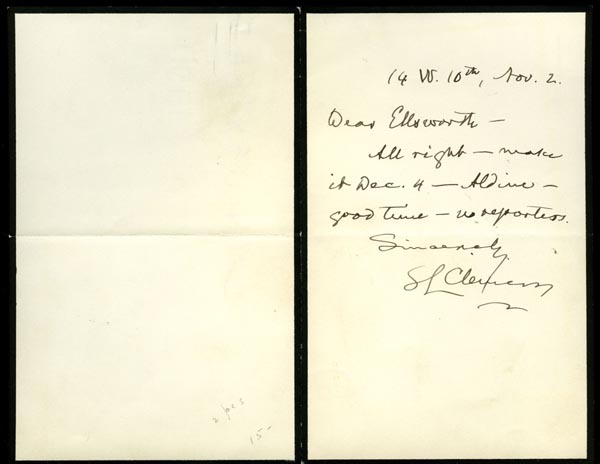 14 W. 10th, Nov. 2.
Dear Ellsworth —
All right — make
it Dec. 4 — Aldine —
good time — no reporters.
Sincerely
SL Clemens
2 pcs
15-